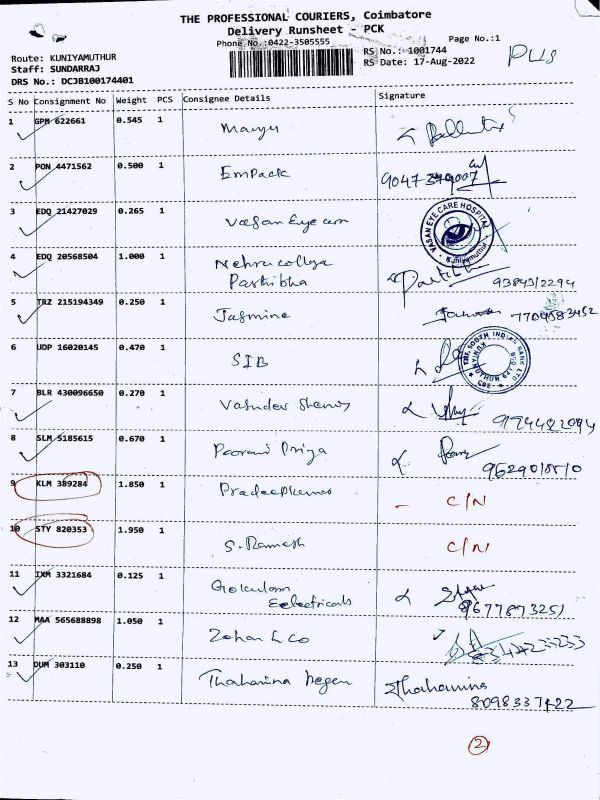 THE PROFESSIONAL COURIERS, Coimbatore
Delivery Runsheet - PCK
Phone No.:0422-3505555
Page No.:1
Route: KUNIYAMUTHUR
RS No.: 1001744
Staff: SUNDARRAJ
RS Date: 17-Aug-2022
DRS No.: DCJB100174401
S No Consignment No Weight PCS Consignee Details Signature
1 GPM 622661 0.545 1
2 PON 4471562 0.500 1 Empack
3 EDQ 21427029 0.265 1 Vasan Eye care
VASAN EYE CARE HOSPITAL
Kuniyamuthur
4 EDQ 20568504 1.000 1 Nehru college
Parthibha 9384312294
5 TRZ 215194349 0.250 1 Jasmine 7709583452
6 UDP 16020145 0.470 1 SIB
THE SOUTH INDIAN BANK LTD
CBE
7 BLR 430096650 0.270 1 Vasudev Shenoy
8 SLM 5185615 0.670 1 Poorani Priya
9 KLM 389284 1.850 1 Pradeepkumar - C/N
10 STY 820353 1.950 1 S. Ramesh C/N
11 IXM 3321684 0.125 1 Gokulam
Eelectricals 9677873251
12 MAA 565688898 1.050 1 Zohan & Co
13 DUM 303110 0.250 1 Thahanina Begen Thahanina
8098337422
2